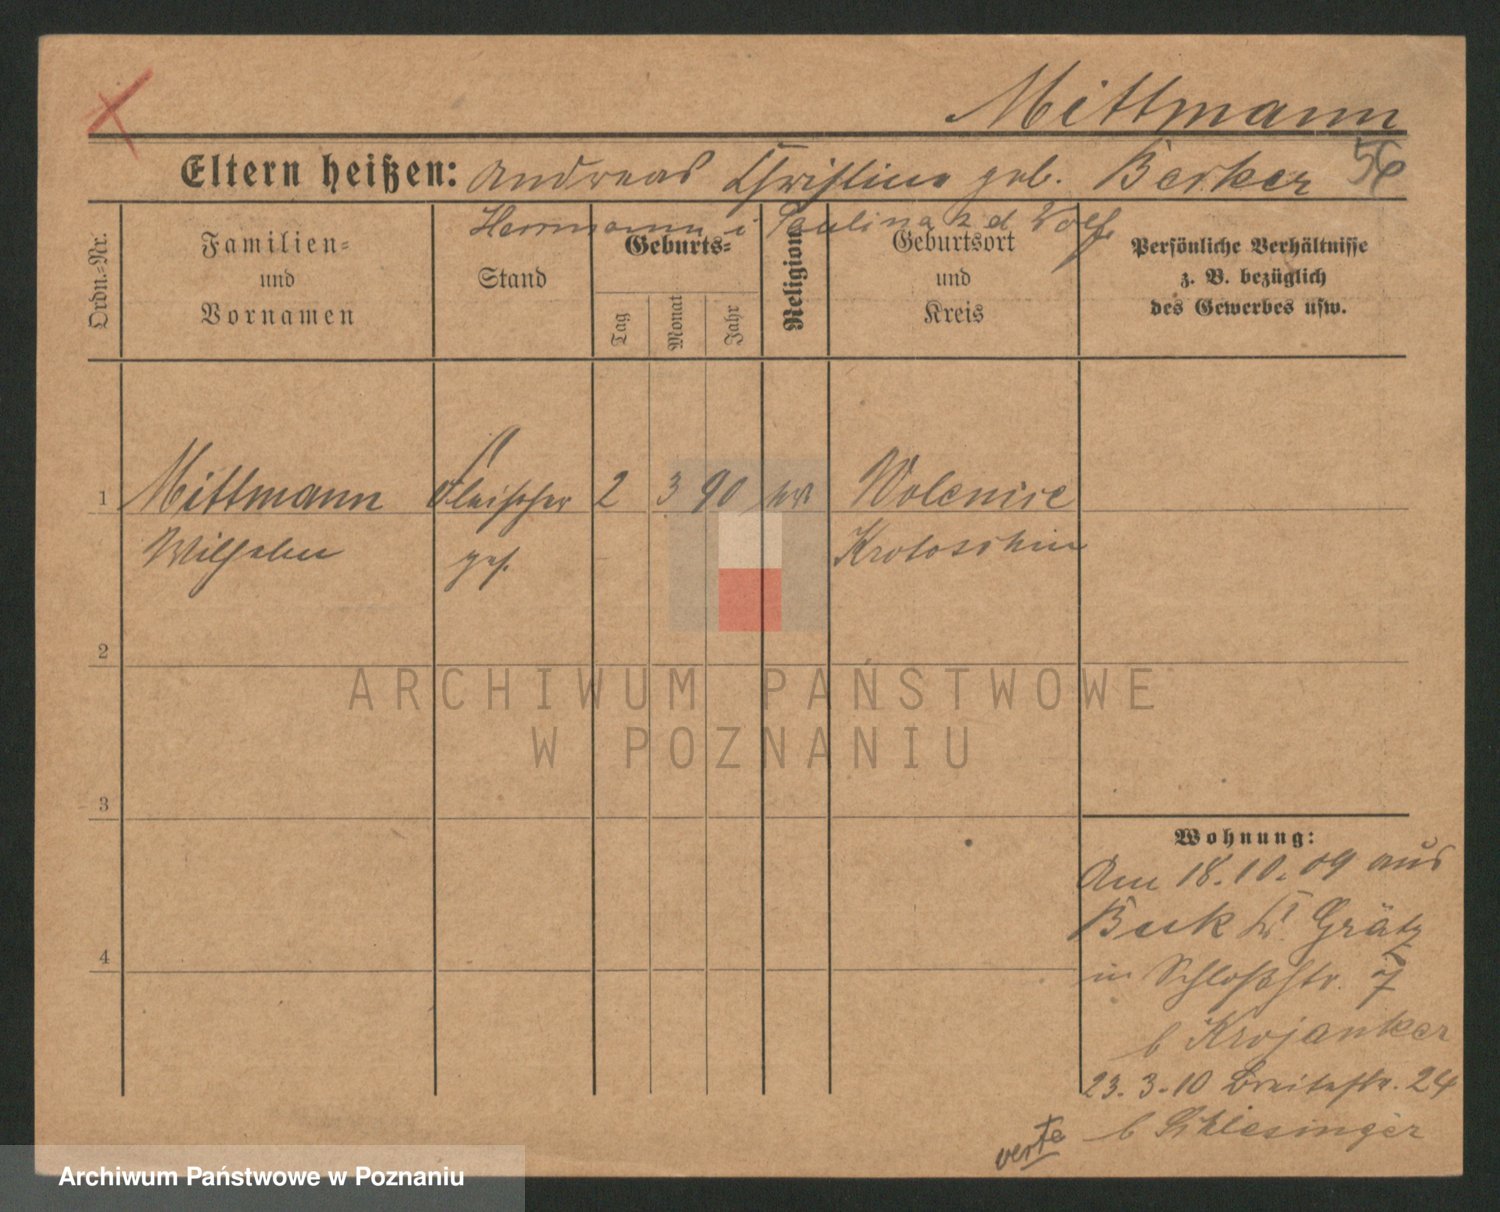 Mittmann
Eltern heißen: Andreas Christine geb. Berker 56
Herrmann i Paulina z d Wolff
Ordn.-Nr.
Familien-
und
Vornamen
Stand
Geburts-
Tag
Monat
Jahr
Religion
Geburtsort
und
Kreis
Persönliche Verhältnisse
z. B. bezüglich
des Gewerbes usw.
1 Mittmann Fleischer 2 3 90 Wolenice
Wilhelm ges. Krotoschin
2
ARCHIWUM PAŃSTWOWE
W POZNANIU
3
Wohnung:
Am 18.10.09 aus
Buk Kr. Grätz
4
in Schloßstr. 7
b Krojanker
23.3.10 Breitestr. 24
b Schlesinger
verte
Archiwum Państwowe w Poznaniu